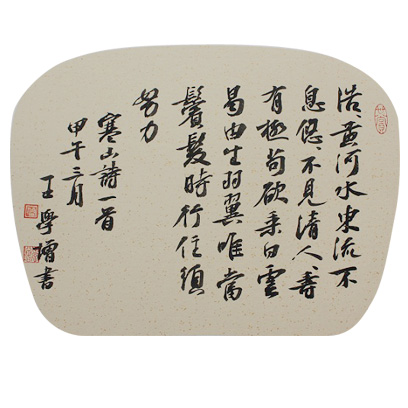 浩〻黄河水東流不
息悠〻不見清人〻壽
有極苟欲乘白雲
曷由生羽翼唯當
鬒髮時行住須
努力
寒山詩一首
甲午三月
王學嶺書